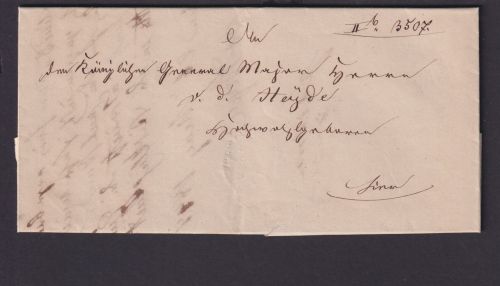 II b. 3507.
An
den Königlichen General Major Herrn
v. d. Heyde
Hochwohlgeboren
hier